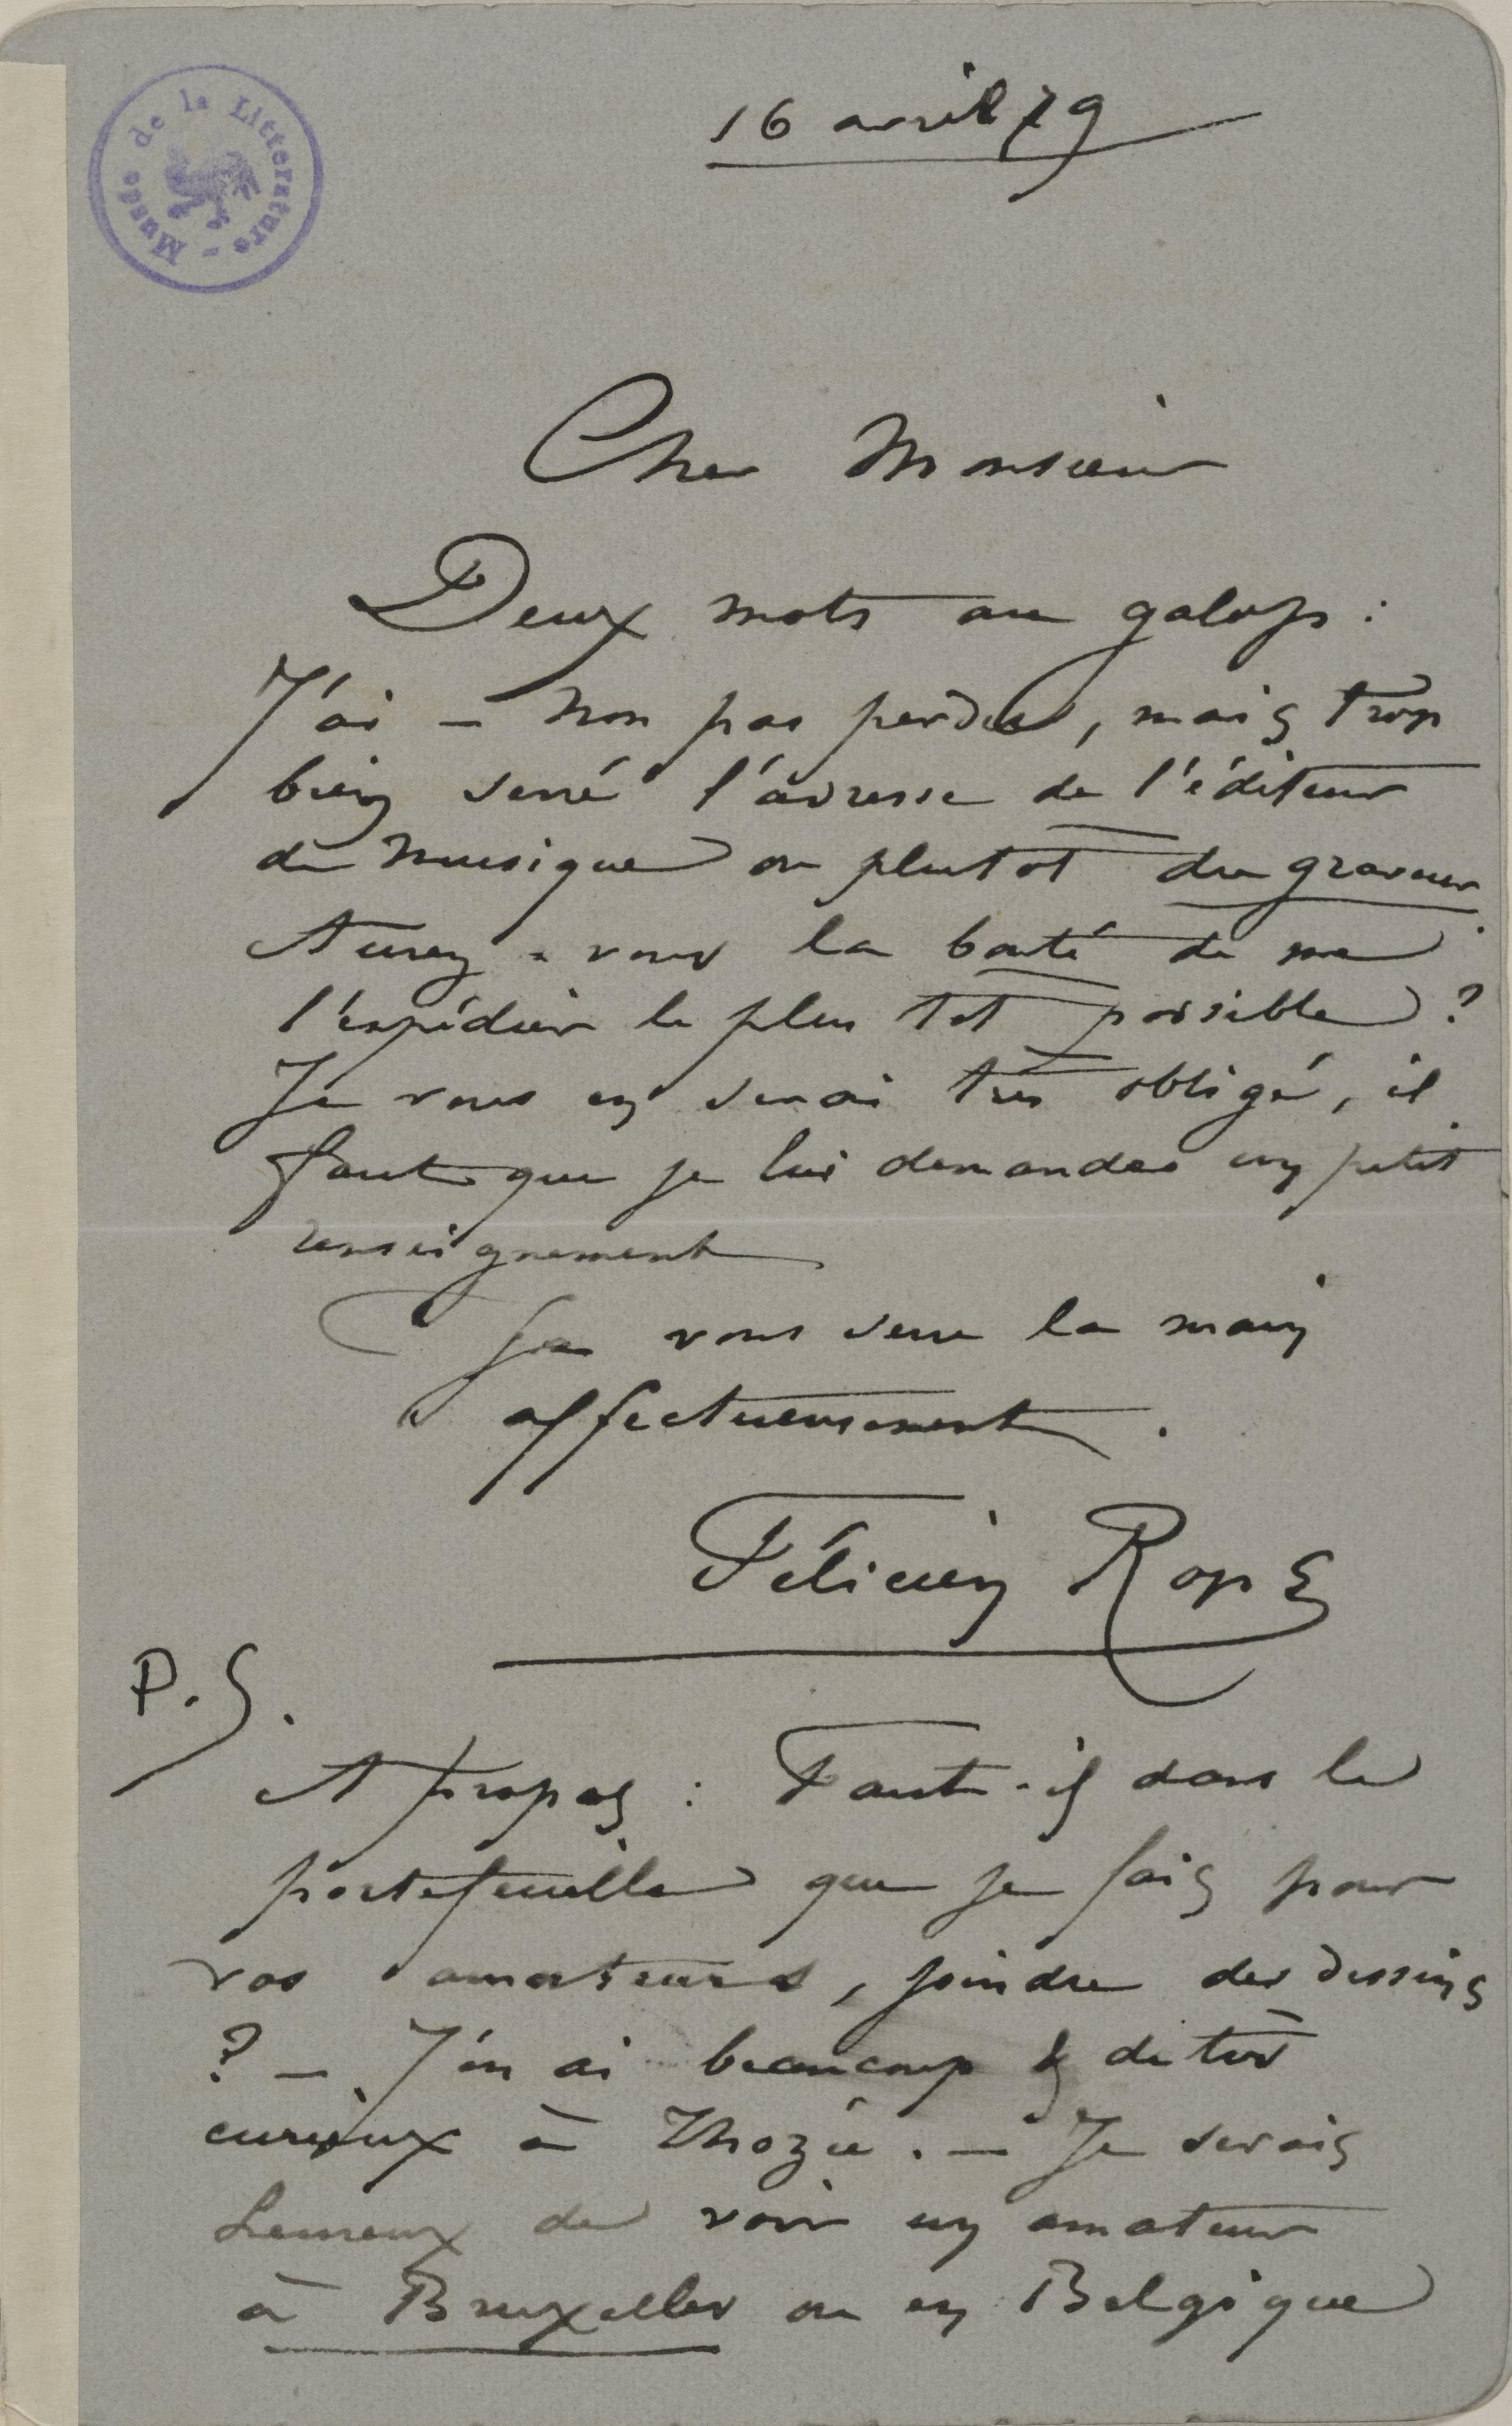 Musée de la Littérature -
16 avril 79
Cher Monsieur
Deux mots au galop :
J'ai – non pas perdu, mais trop
bien serré l'adresse de l'éditeur
de musique ou plutot du graveur
Aurez-vous la bonté de me
l'expédier le plus tot possible ?
Je vous en serai très obligé, il
faut que je lui demande un petit
renseignement
Je vous serre la main
affectueusement.
Félicien Rops
P.S.
A propos : Faut-il dans le
portefeuille que je fais pour
vos amateurs, joindre des dessins
? – J'en ai beaucoup & de très
curieux à Thozée. – Je serais
heureux de voir un amateur
à Bruxelles ou en Belgique